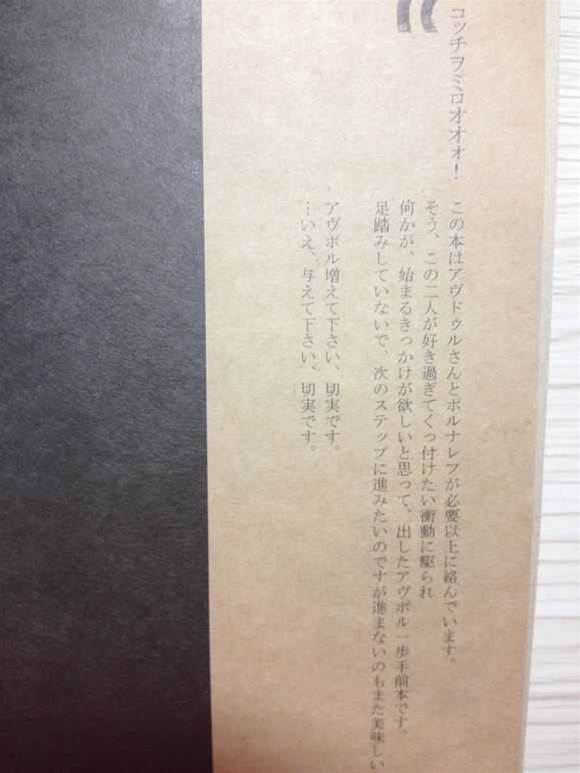 “
コッチヲミロオオォ!
この本はアヴドゥルさんとポルナレフが必要以上に絡んでいます。
そう、この二人が好き過ぎてくっ付けたい衝動に駆られ
何かが、始まるきっかけが欲しいと思って、出したアヴポル一歩手前本です。
足踏みしていないで、次のステップに進みたいのですが進まないのもまた美味しい
アヴポル増えて下さい、切実です。
…いえ、与えて下さい、切実です。